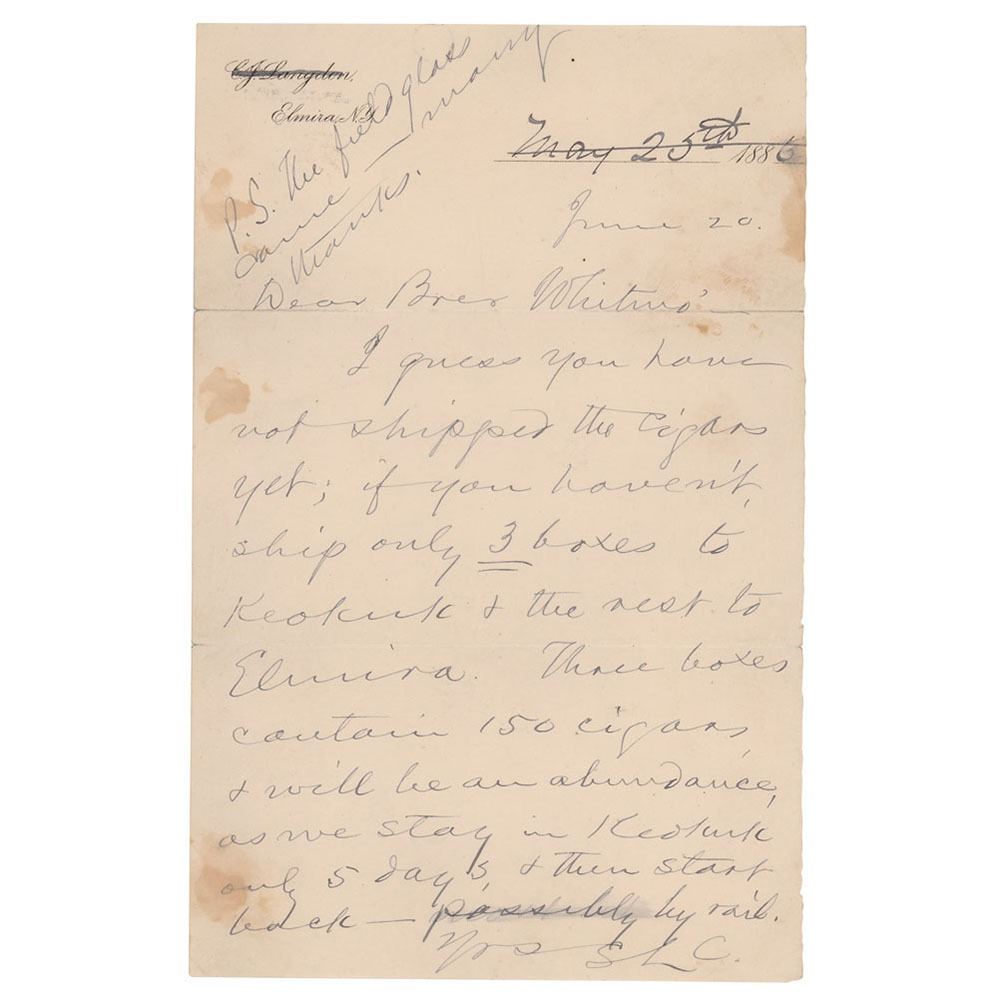 C.J. Langdon.
Elmira, N.Y.
P.S. The field glass
came — many
thanks.
May 25th 1886
June 20.
Dear Brer Whitmo' —
I guess you have
not shipped the cigars
yet; if you haven't,
ship only 3 boxes to
Keokuk & the rest to
Elmira. Three boxes
contain 150 cigars,
& will be an abundance,
as we stay in Keokuk
only 5 days, & then start
back — possibly by rail.
Yrs SLC.